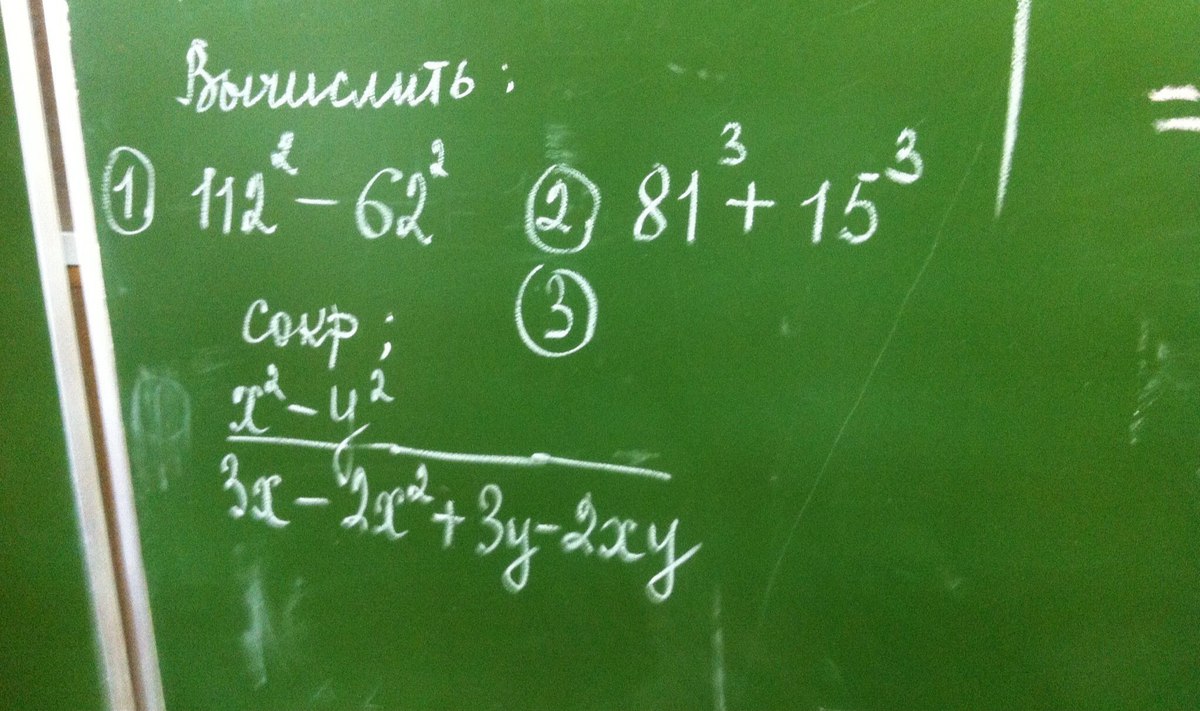 Вычислить:
① 112² - 62² ② 81³ + 15³
③
сокр;
x² - y²
3x - 2x² + 3y - 2xy
=